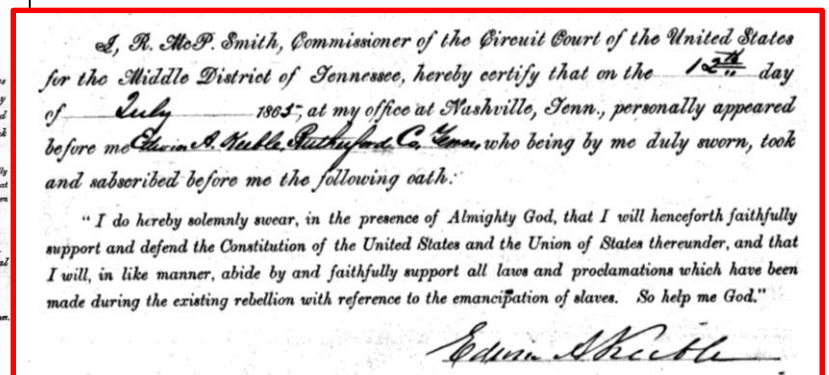 I, R. McP. Smith, Commissioner of the Circuit Court of the United States
for the Middle District of Tennessee, hereby certify that on the 12th day
of July 1865, at my office at Nashville, Tenn., personally appeared
before me Edwin A. Keeble, Rutherford Co. Tenn, who being by me duly sworn, took
and subscribed before me the following oath:
“I do hereby solemnly swear, in the presence of Almighty God, that I will henceforth faithfully
support and defend the Constitution of the United States and the Union of States thereunder, and that
I will, in like manner, abide by and faithfully support all laws and proclamations which have been
made during the existing rebellion with reference to the emancipation of slaves. So help me God.”
Edwin A Keeble